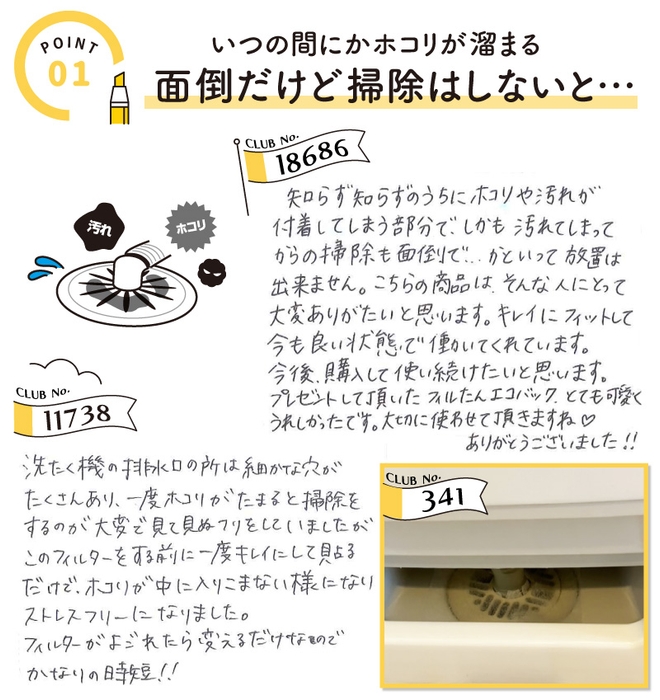 POINT
01
いつの間にかホコリが溜まる
面倒だけど掃除はしないと…
CLUB No.
18686
知らず知らずのうちにホコリや汚れが
付着してしまう部分で、しかも 汚れてしまって
からの掃除も面倒で... かといって 放置は
出来ません。こちらの商品は、そんな人にとって
大変ありがたいと思います。キレイにフィットして
今も良い状態で働いてくれています。
今後、購入して使い続けたいと思います。
プレゼントして頂いた フィルたんエコバック、とても可愛く
うれしかったです。大切に使わせて頂きますね♡
ありがとうございました!!
汚れ
ホコリ
CLUB No.
11738
洗たく機の排水口の所は細かな穴が
たくさんあり、一度ホコリがたまると掃除を
するのが大変で見て見ぬフリをしていましたが
このフィルターをする前に一度キレイにして貝占る
だけで、ホコリが中に入りこまない様になり
ストレスフリーになりました。
フィルターがよごれたら変えるだけなので
かなりの時短!!
CLUB No.
341